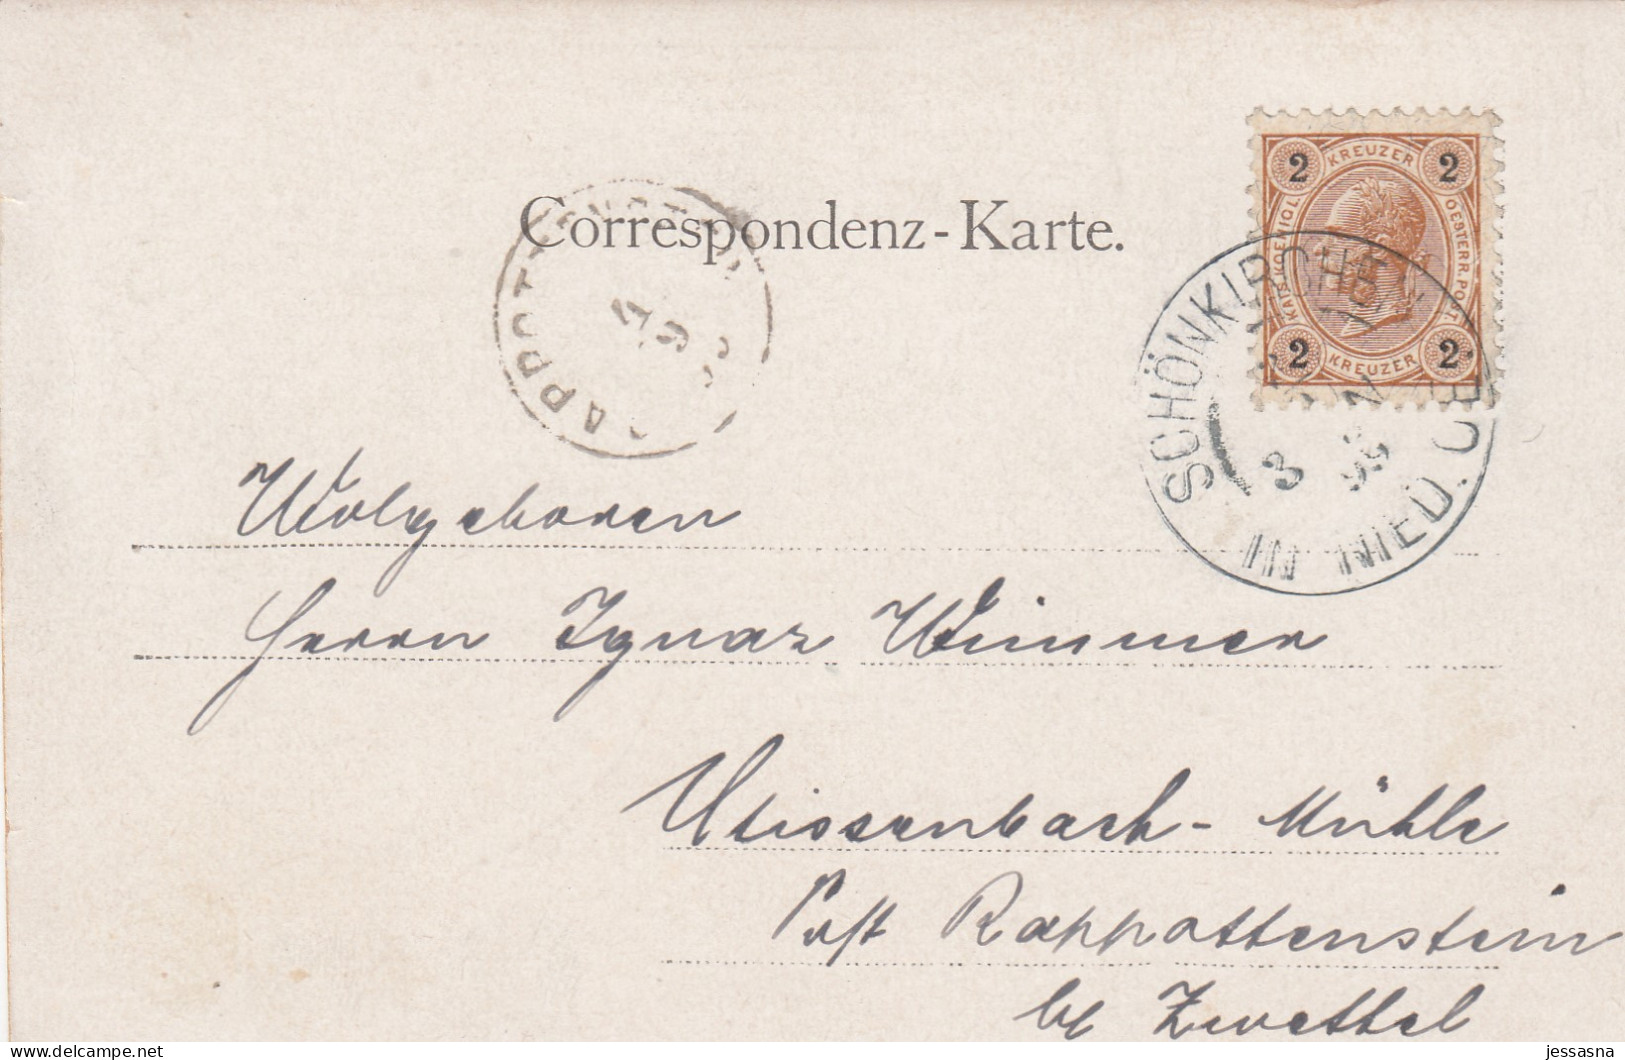 Correspondenz-Karte.
2 KREUZER 2
KAIS. KOENIGL. OESTERR. POST
2 KREUZER 2
SCHÖNKIRCHE
3
IN NIED. OE
Wolgeboren
Herrn Ignaz Wimmer
Weissenbach-Mühle
Post Rappottenstein
by Zwettel
delcampe.net
jessasna